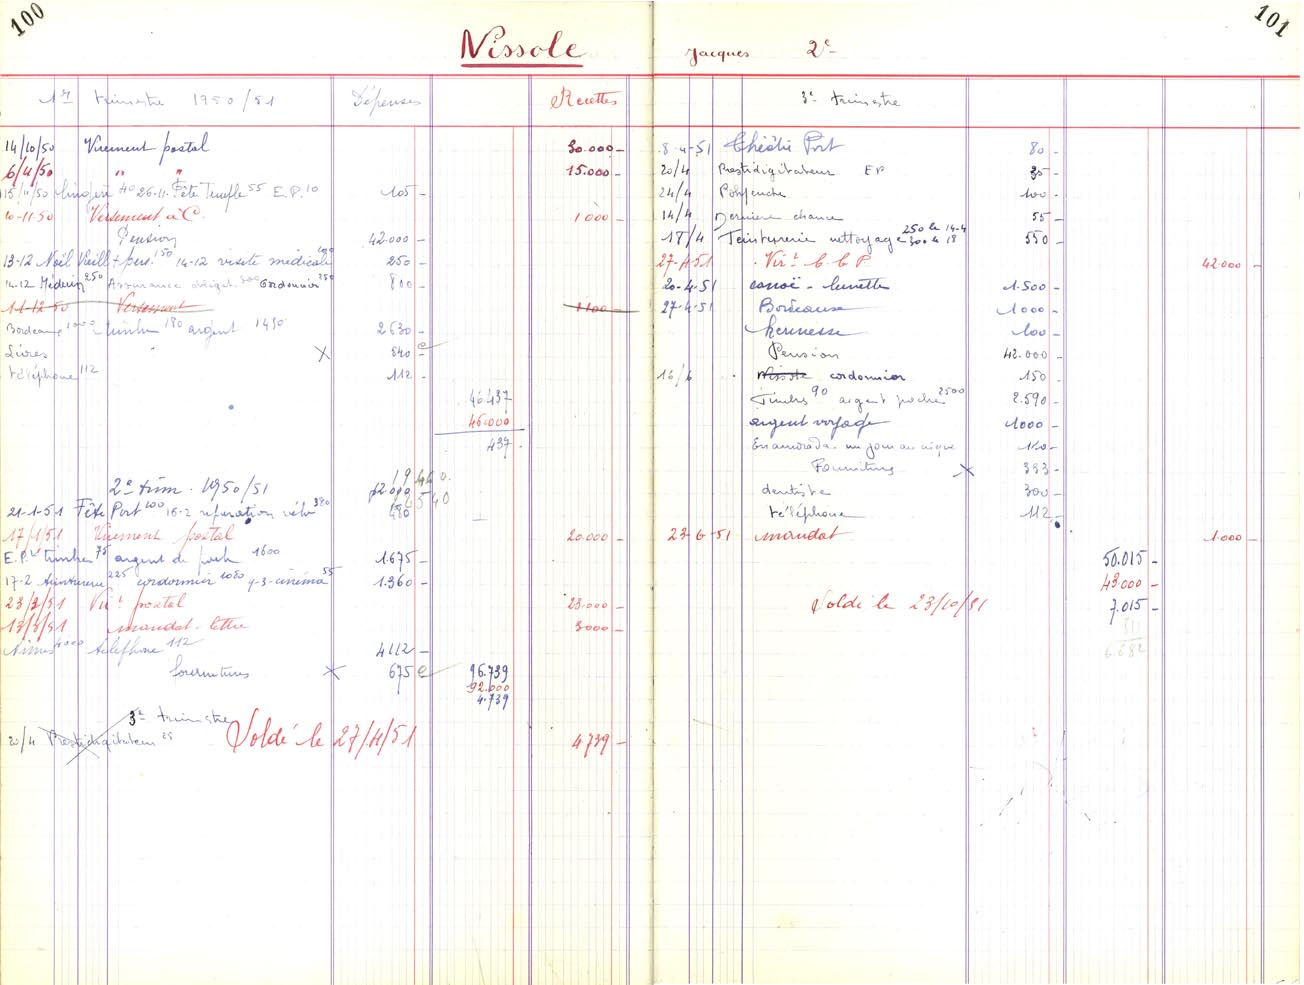 100
Nissole
1er trimestre 1950/51 Dépenses Recettes
14/10/50 Virement postal 30.000-
6/11/50 " " 15.000-
15/11/50 lingerie 40 26-11. Fête Temple 55 E.P. 10 105-
20-11-50 Versement à C. 1000-
Pension 42000-
13-12 Noël Vieill + pers. 150 14-12 visite médicale 100 250-
14-12 Médecin 250 Assurance obligat. 300 Cordonnier 250 800-
11-12-50 Versement 1100
Bordeaux 1000 timbres 180 argent 1450 2630-
Livres X 840-
téléphone 112 112-
46437
46000
437-
2e trim. 1950/51 42.000
21-1-51 Fête Port 100 16-2 réparation vélo 380 480
17/1/51 Virement postal 20.000-
E.P. timbres 75 argent de poche 1600 1.675-
17-2 teinturerie 225 cordonnier 1080 4-3-cinéma 55 1.360-
23/2/51 Virt postal 23.000-
13/3/51 mandat-lettre 3000-
Nîmes 4000 téléphone 112 4112-
fournitures X 675 96.739
92.000
4.739
3e trimestre
20/4 Prestidigitateur 25
Soldé le 27/4/51 4739-
101
Jacques 2e
3e trimestre
8-4-51 Théâtre Port 80-
20/4 Prestidigitateur EP 35-
24/4 Polyeucte 100-
14/4 Dernière chance 55-
18/4 Teinturerie nettoyage 250 le 14-4 300 le 18 550-
27-4-51 Virt C.C.P. 42000-
20-4-51 canoë-lunette 1.500-
27-4-51 Bordeaux 1000-
kermesse 100-
Pension 42.000-
16/6 Nissole cordonnier 150-
Timbres 90 argent poche 2500 2.590-
argent voyage 1000-
Enamorada - un jour au cirque
Fournitures X 383-
dentiste 300-
téléphone 112-
23-6-51 mandat 1.000-
50.015-
43.000-
Soldé le 23/10/51 7.015-